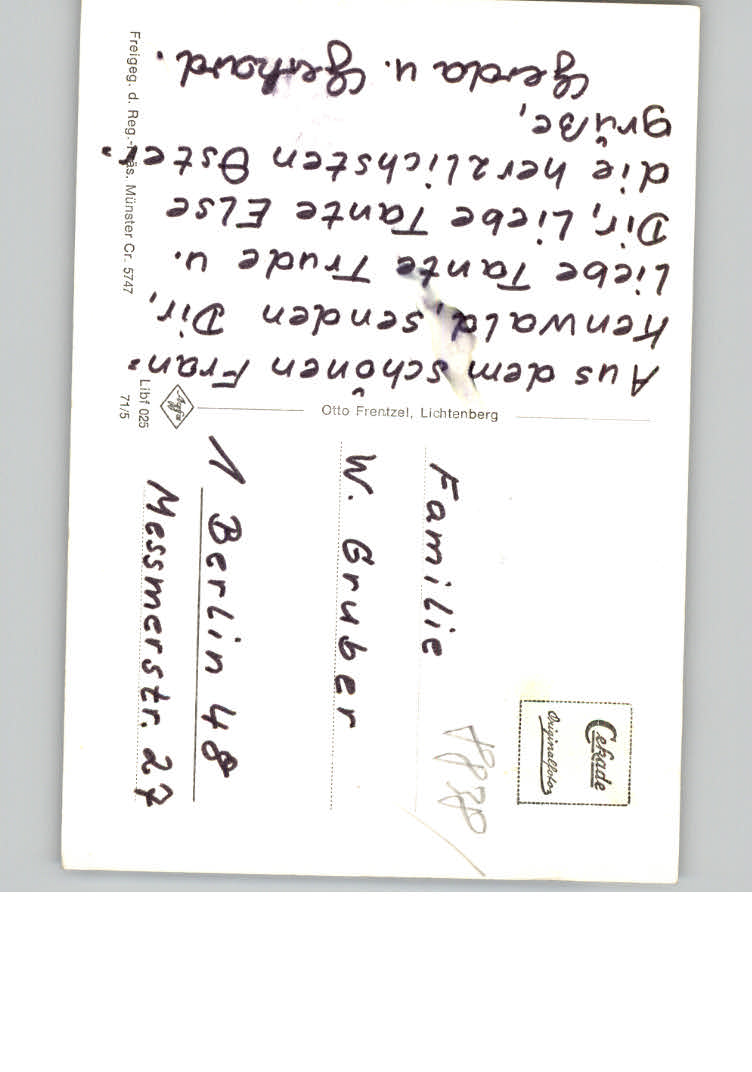 Aus dem schönen Fran=
kenwald, senden Dir,
Liebe Tante Trude u.
Dir, Liebe Tante Else
die herzlichsten Oster=
grüße,
Gerda u. Gerhard.
Freigeg. d. Reg.-Präs. Münster Cr. 5747
Otto Frentzel, Lichtenberg
Agfa
Libf 025
71/5
Cekade
Originalfotos
Familie
W. Gruber
1 Berlin 48
Messmerstr. 27